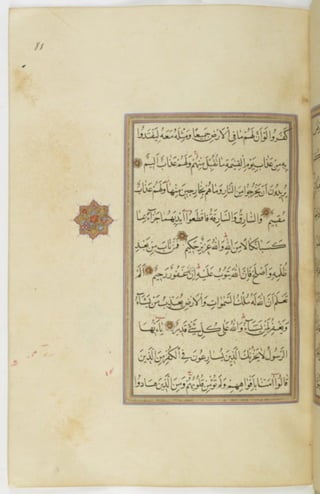 كَفَرُوا لَوْ اَنَّ لَهُمْ مَا فِي الْاَرْضِ جَمِيعًا وَمِثْلَهُ مَعَهُ لِيَفْتَدُوا
بِهِ مِنْ عَذَابِ يَوْمِ الْقِيٰمَةِ مَا تُقُبِّلَ مِنْهُمْ وَلَهُمْ عَذَابٌ اَلِيمٌ
يُرِيدُونَ اَنْ يَخْرُجُوا مِنَ النَّارِ وَمَا هُمْ بِخَارِجِينَ مِنْهَا وَلَهُمْ عَذَابٌ
مُقِيمٌ وَالسَّارِقُ وَالسَّارِقَةُ فَاقْطَعُوا اَيْدِيَهُمَا جَزَاءً بِمَا
كَسَبَا نَكَالًا مِنَ اللّٰهِ وَاللّٰهُ عَزِيزٌ حَكِيمٌ فَمَنْ تَابَ مِنْ بَعْدِ
ظُلْمِهِ وَاَصْلَحَ فَاِنَّ اللّٰهَ يَتُوبُ عَلَيْهِ اِنَّ اللّٰهَ غَفُورٌ رَحِيمٌ اَلَمْ
تَعْلَمْ اَنَّ اللّٰهَ لَهُ مُلْكُ السَّمٰوَاتِ وَالْاَرْضِ يُعَذِّبُ مَنْ يَشَاءُ
وَيَغْفِرُ لِمَنْ يَشَاءُ وَاللّٰهُ عَلٰى كُلِّ شَيْءٍ قَدِيرٌ يَا اَيُّهَا
الرَّسُولُ لَا يَحْزُنْكَ الَّذِينَ يُسَارِعُونَ فِي الْكُفْرِ مِنَ الَّذِينَ
قَالُوا اٰمَنَّا بِاَفْوَاهِهِمْ وَلَمْ تُؤْمِنْ قُلُوبُهُمْ وَمِنَ الَّذِينَ هَادُوا